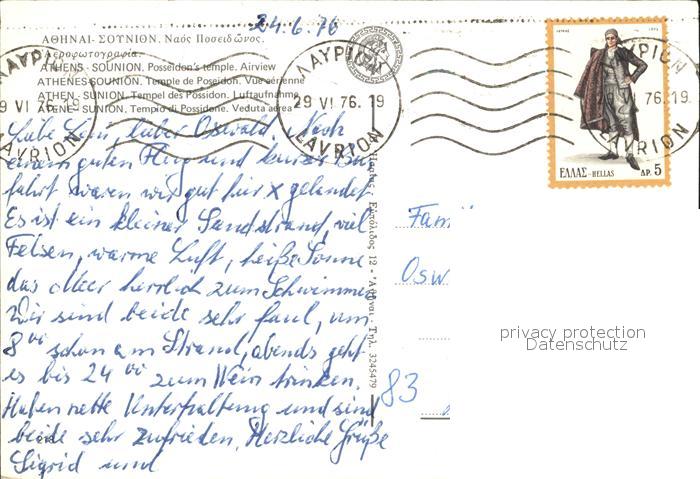 24.6.76
ΑΘΗΝΑΙ - ΣΟΥΝΙΟΝ. Ναός Ποσειδῶνος.
Ἀεροφωτογραφία.
ATHENS - SOUNION. Posseidon's temple. Airview
ATHENES-SOUNION. Temple de Poseidon. Vue aérienne
ATHEN - SUNION. Tempel des Poseidon. Luftaufnahme
ATENE - SUNION. Tempio di Possidone. Veduta aerea
ΛΑΥΡΙΟΝ
29 VI 76. 19
LAVRION
ΛΑΥΡΙΟΝ
29 VI 76. 19
LAVRION
ΛΑΥΡΙΟΝ
76. 19
LAVRION
ΕΛΛΑΣ-HELLAS ΔΡ. 5
Liebe , lieber Oswald. Nach
einem guten Flug und kurzer Bus
fahrt waren wir gut hier x gelandet
Es ist ein kleiner Sandstrand, viel
Felsen, warme Luft, heiße Sonne
das Meer herrlich zum Schwimmen
Wir sind beide sehr faul, um
8 00 schon am Strand, abends geht
es bis 24 00 zum Wein trinken.
Haben nette Unterhaltung und sind
beide sehr zufrieden. Herzliche Grüße
Sigrid und
Εὐπόλιδος 12 - Ἀθῆναι - Τηλ. 3245479
Fami
Osw
83
privacy protection
Datenschutz